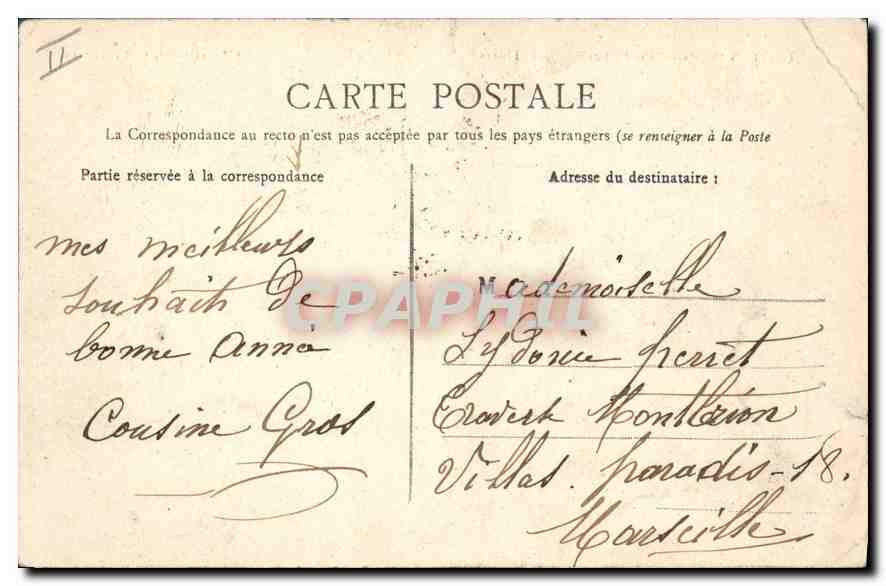 II
CARTE POSTALE
La Correspondance au recto n'est pas acceptée par tous les pays étrangers (se renseigner à la Poste
Partie réservée à la correspondance
mes meilleurs
souhaits de
bonne anné
Cousine Gros
Adresse du destinataire :
Mademoiselle
Lydonie Perret
Travert Montbrion
Villas. paradis-18.
Marseille
CPAPHIL